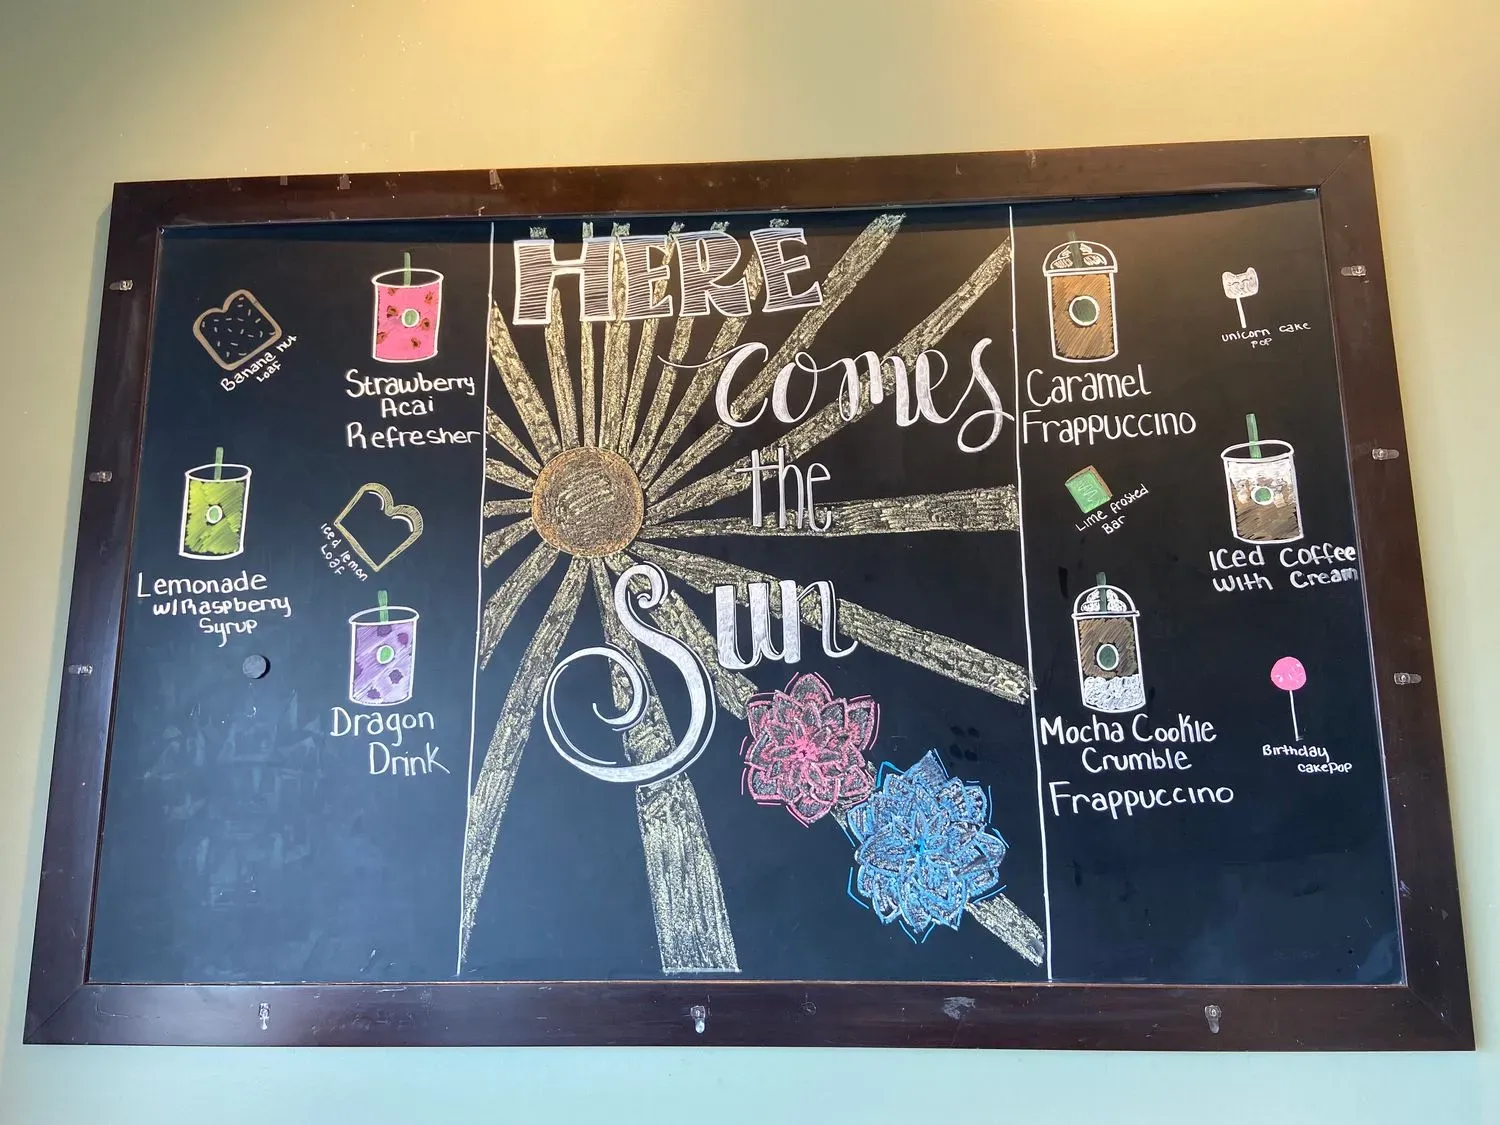 Banana nut
Loaf
Strawberry
Acai
Refresher
Lemonade
w/Raspberry
Syrup
Iced lemon
Loaf
Dragon
Drink
HERE
comes
the
Sun
Caramel
Frappuccino
unicorn cake
pop
Lime frosted
Bar
Iced Coffee
With Cream
Mocha Cookie
Crumble
Frappuccino
Birthday
cakepop